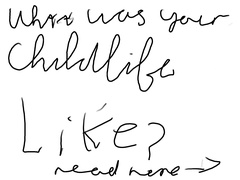 What was your
Childlife
Like?
read more →